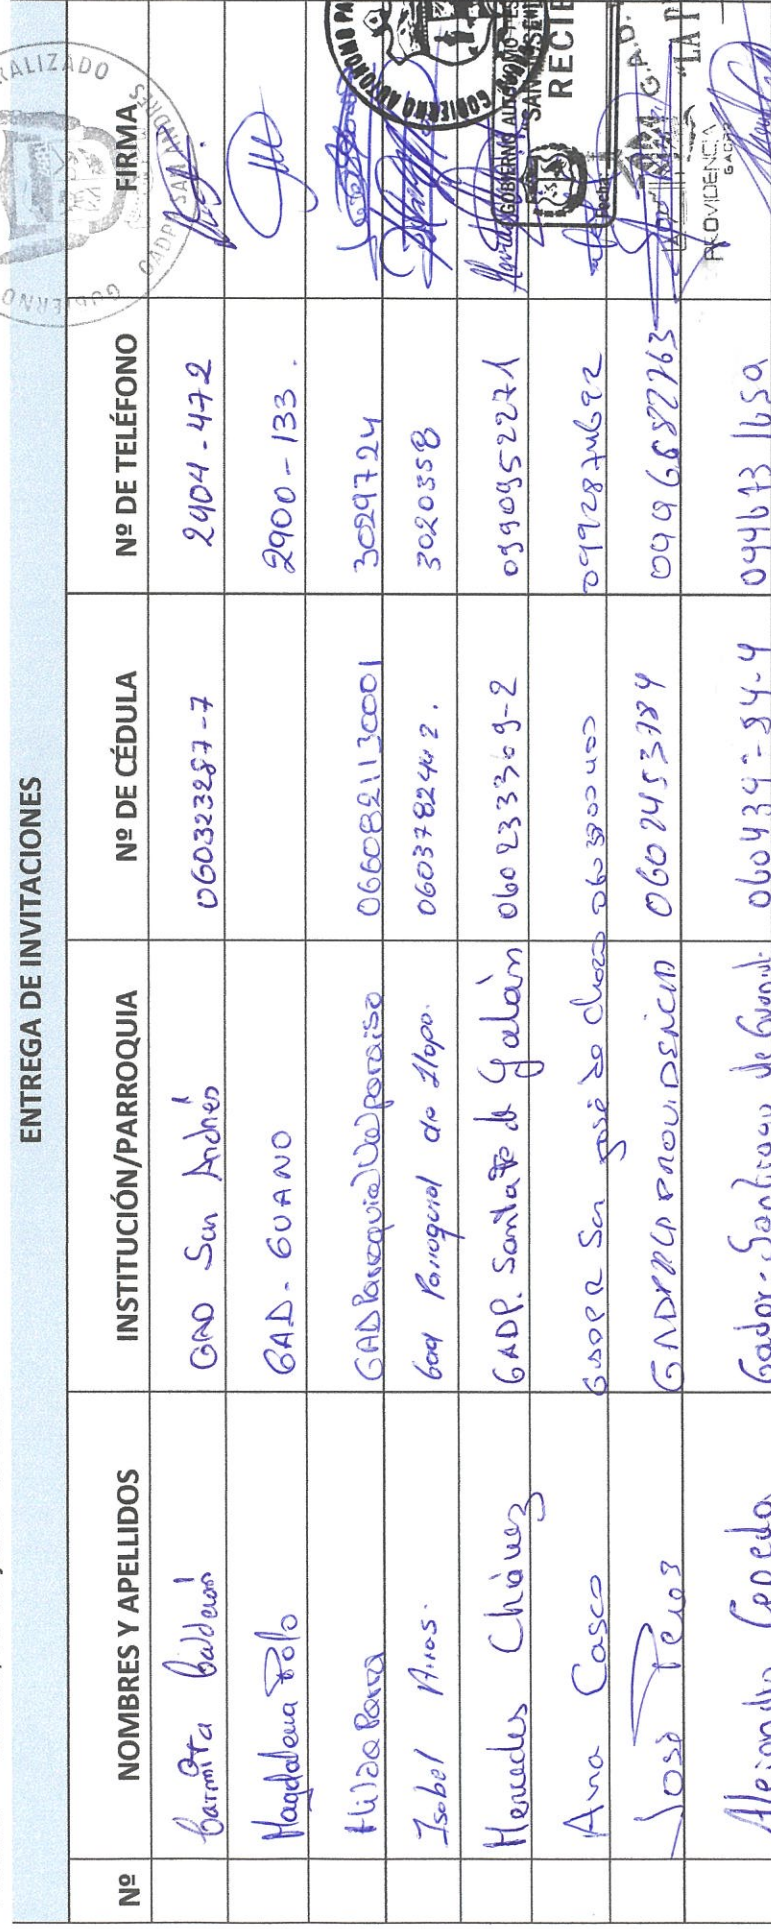 ENTREGA DE INVITACIONES
Nº NOMBRES Y APELLIDOS INSTITUCIÓN/PARROQUIA Nº DE CÉDULA Nº DE TELÉFONO FIRMA
Carmita Calderón GAD San Andrés 060323287-7 2904-472
Magdalena Polo GAD-GUANO 2900-133.
Hilda Parra GAD Parroquial Valparaiso 0660821130001 3029724
Isabel Gad Parroquial de Ilapo. 0603782442. 3020358
Mercedes Chávez GADP. Santa Fe de Galán 060233369-2 0990952271
Ana Casco San José de Chazo
José Perez PROVIDENCIA 0602453784 0996682763
Alejandro Cepeda Santiago de Guanando
RALIZADO
GADPR SAN ANDRES
GOBIERNO
GOBIERNO AUTONOMO PA
GOBIERNO AUTONOMO
RECIBI
Fecha:
G.A.D.
"LA P
PROVIDENCIA